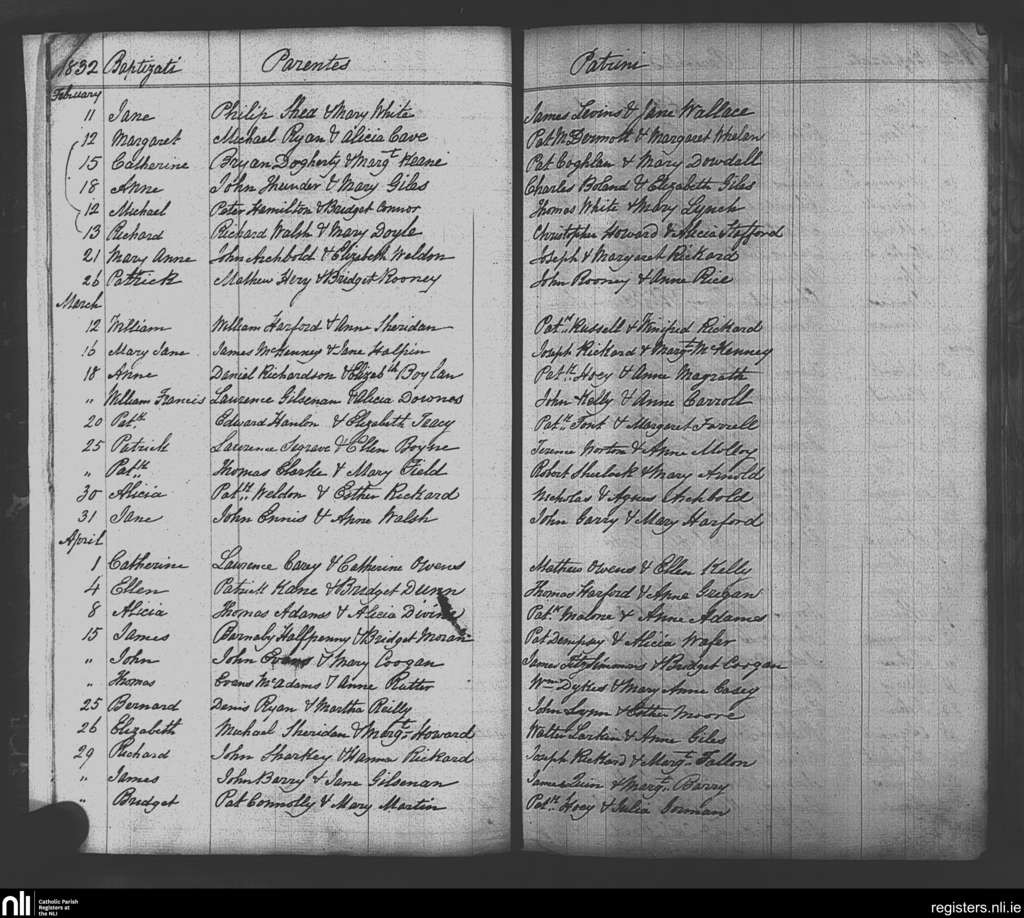 1832 Baptizati Parentes Patrini
February
11 Jane Philip Shea & Mary White James Levins & Jane Wallace
12 Margaret Michael Ryan & Alicia Cave Pat McDermott & Margaret Whelan
15 Catherine Bryan Dogherty & Margt Keane Pat Coghlan & Mary Dowdall
18 Anne John Thunder & Mary Giles Charles Boland & Elizabeth Giles
12 Michael Peter Hamilton & Bridget Connor Thomas White & Mary Lynch
13 Richard Richard Walsh & Mary Doyle Christopher Howard & Alicia Stafford
21 Mary Anne John Archbold & Elizabeth Weldon Joseph & Margaret Rickard
26 Patrick Mathew Hery & Bridget Rooney John Rooney & Anne Rice
March
12 William William Harford & Anne Sheridan Patk Russell & Winifred Rickard
16 Mary Jane James McKenney & Jane Halpin Joseph Rickard & Margt McKenney
18 Anne Daniel Richardson & Elizabth Boylan Patk Hoey & Anne Magrath
" William Francis Laurence Gilsenan & Alicia Downes John Kelly & Anne Carroll
20 Patk Edward Hanlon & Elizabeth Teacy Patk Font & Margaret Farrell
25 Patrick Laurence Segrave & Ellen Boyne Terence Norton & Anne Molloy
" Patk Thomas Clarke & Mary Field Robert Sherlock & Mary Arnold
30 Alicia Patk Weldon & Esther Rickard Nicholas & Agnes Archbold
31 Jane John Ennis & Anne Walsh John Garry & Mary Harford
April
1 Catherine Laurence Carey & Catherine Owens Mathew Owens & Ellen Kelly
4 Ellen Patrick Kane & Bridget Dunn Thomas Harford & Anne Geegan
8 Alicia Thomas Adams & Alicia Divine Patk Malone & Anne Adams
15 James Barnaby Halfpenny & Bridget Moran Pat Dempsey & Alicia Wafer
" John John Evans & Mary Coogan James Fitzsimmons & Bridget Coogan
" Thomas Evans McAdams & Anne Rutter Wm Dykes & Mary Anne Casey
25 Bernard Denis Ryan & Martha Reilly John Lynn & Esther Moore
26 Elizabeth Michael Sheridan & Margt Howard Walter Larkin & Anne Giles
29 Richard John Sharkey & Hanna Rickard Joseph Rickard & Margt Fallon
" James John Barry & Jane Gilsenan James Quin & Margt Barry
" Bridget Pat Connolly & Mary Martin Patk Hoey & Julia Jorman
nli Catholic Parish
Registers at
the NLI
registers.nli.ie